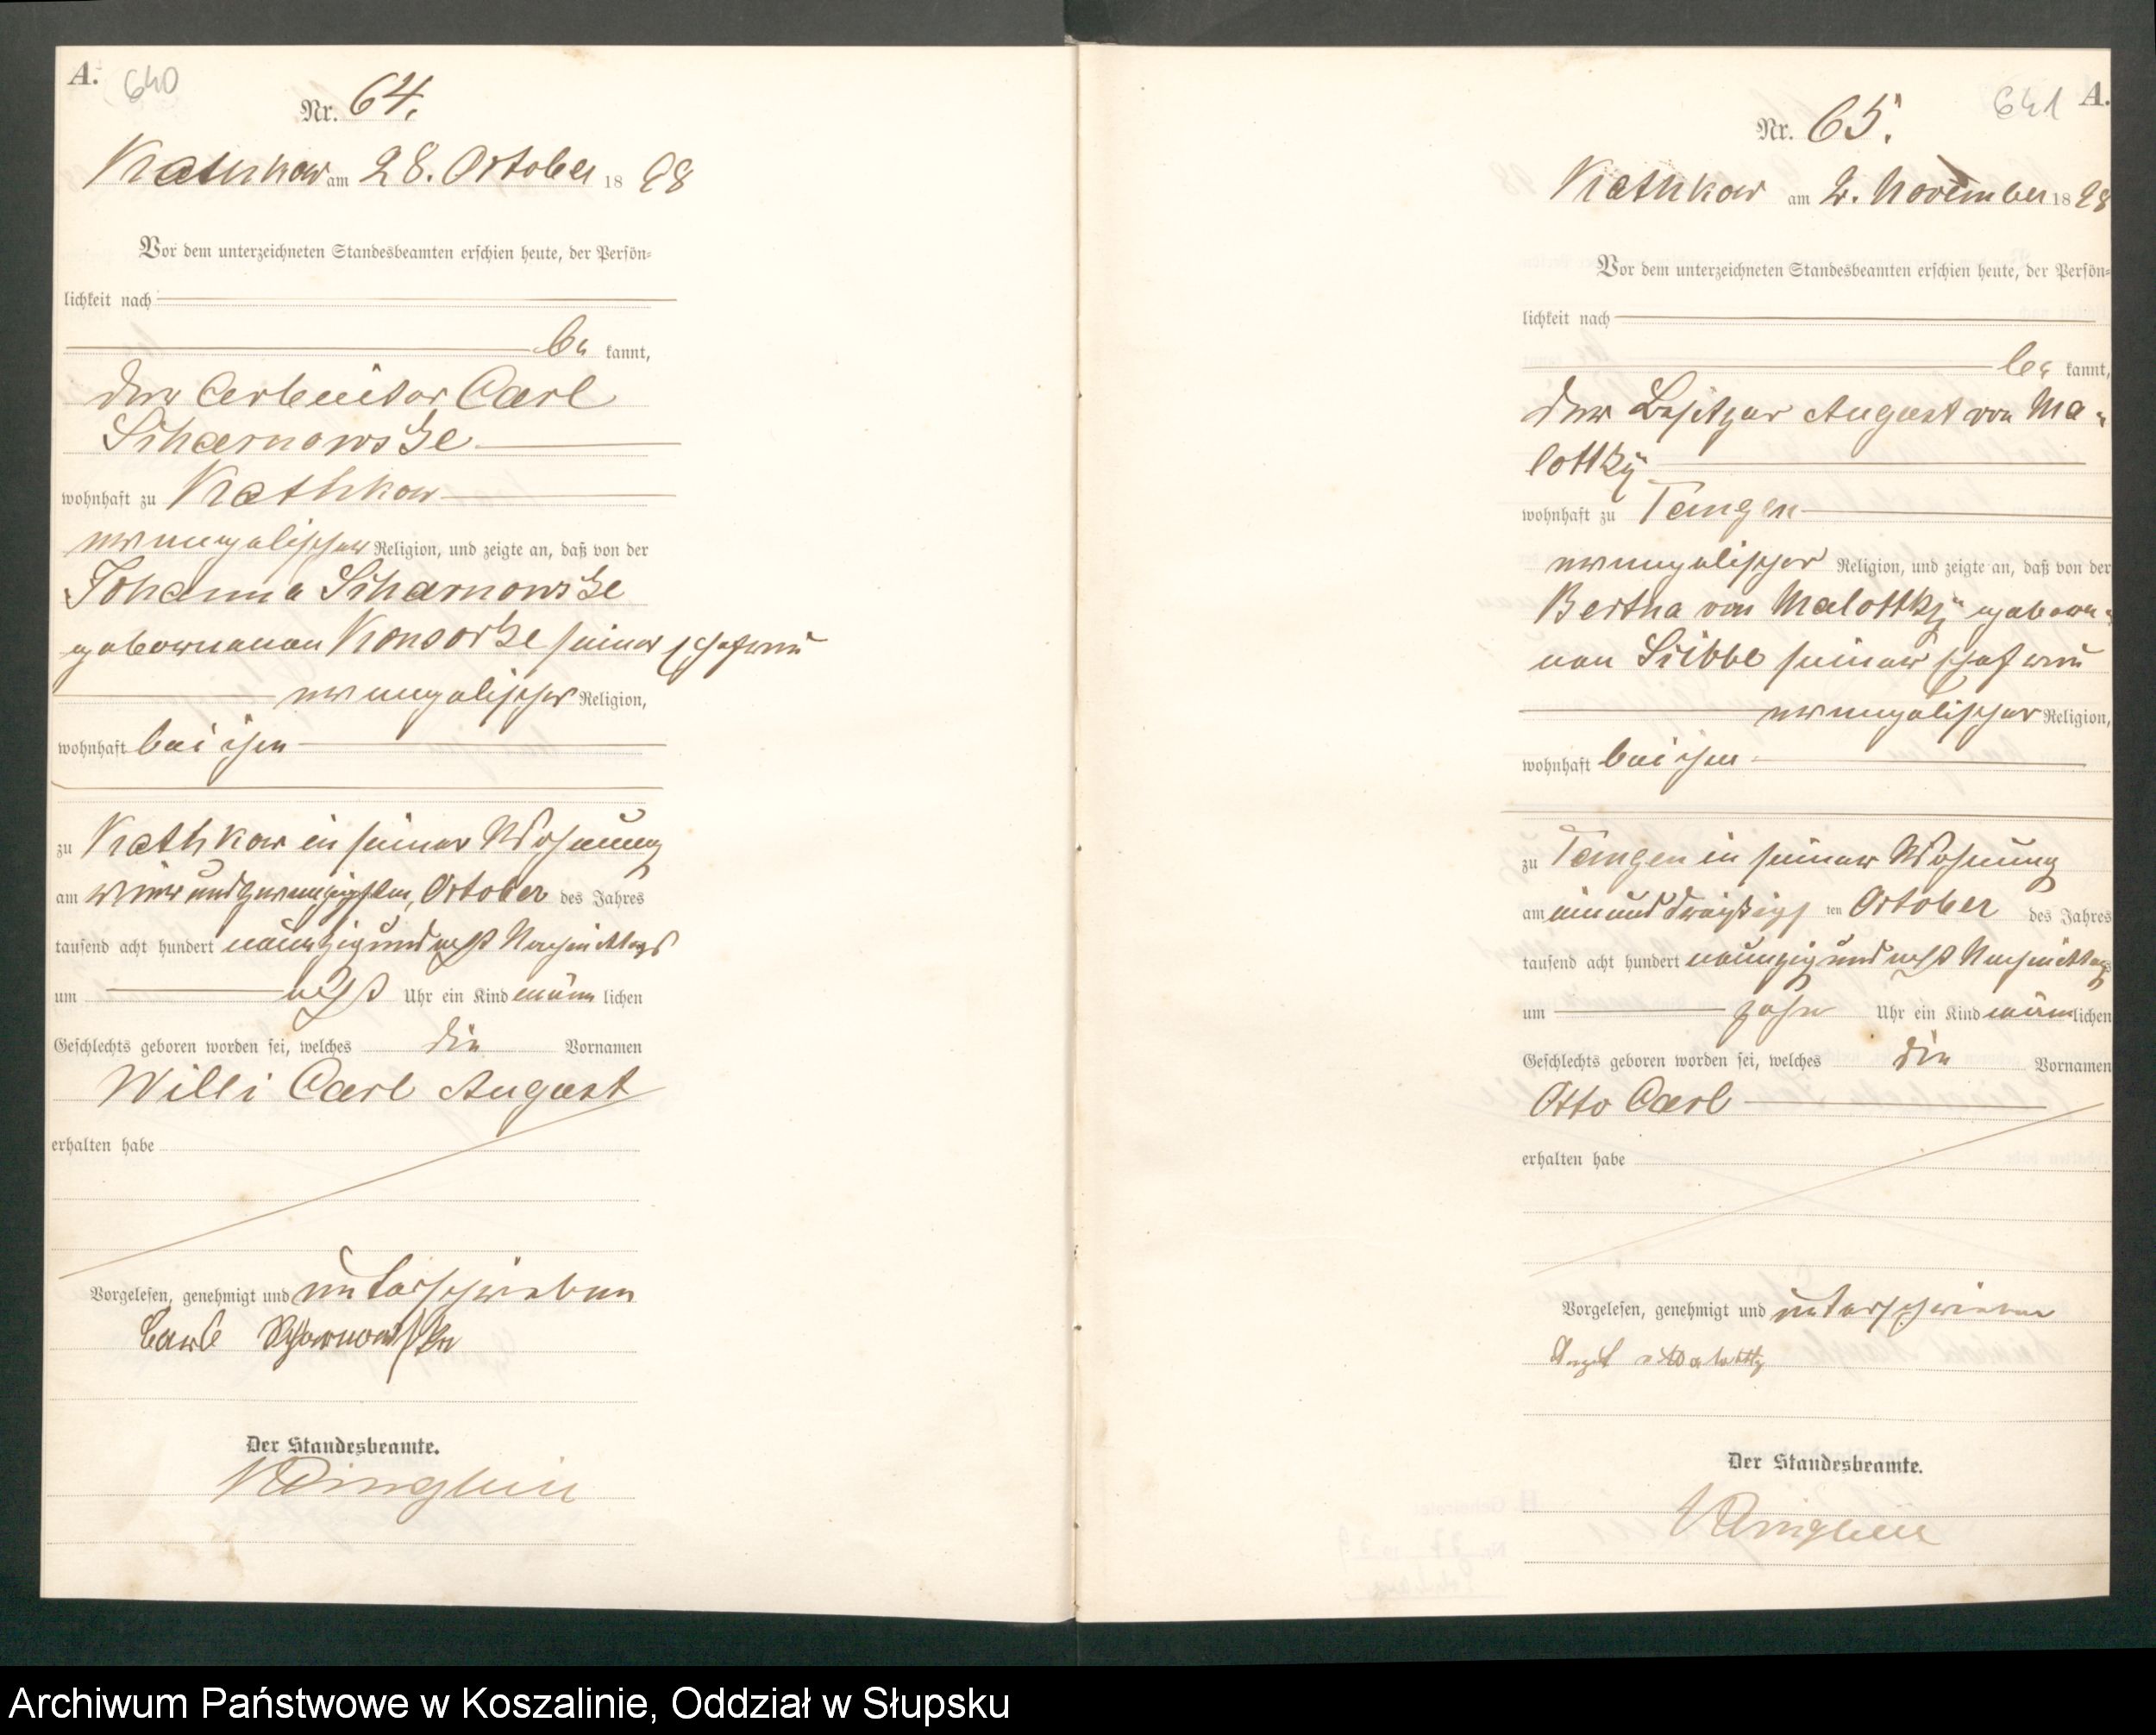 A.
640
Nr. 64.
Kathkow am 28. October 1898
Vor dem unterzeichneten Standesbeamten erschien heute, der Persön-
lichkeit nach
be kannt,
der Arbeiter Carl
Scharnowske
wohnhaft zu Kathkow
evangelischer Religion, und zeigte an, daß von der
Johanna Scharnowske
geborenen Konsorke seiner Ehefrau
evangelischer Religion,
wohnhaft bei ihm
zu Kathkow in seiner Wohnung
am vierundzwanzigsten October des Jahres
tausend acht hundert neunzig und acht Nachmittags
um acht Uhr ein Kind männlichen
Geschlechts geboren worden sei, welches die Vornamen
Willi Carl August
erhalten habe
Vorgelesen, genehmigt und unterschrieben
Carl Scharnowske
Der Standesbeamte.
641
A.
Nr. 65.
Kathkow am 2. November 1898
Vor dem unterzeichneten Standesbeamten erschien heute, der Persön-
lichkeit nach
be kannt,
der Besitzer August von Ma-
lottky
wohnhaft zu Tangen
evangelischer Religion, und zeigte an, daß von der
Bertha von Malottky gebore-
nen Sibbe seiner Ehefrau
evangelischer Religion,
wohnhaft bei ihm
zu Tangen in seiner Wohnung
am einunddreißigsten October des Jahres
tausend acht hundert neunzig und acht Nachmittags
um zehn Uhr ein Kind männlichen
Geschlechts geboren worden sei, welches die Vornamen
Otto Carl
erhalten habe
Vorgelesen, genehmigt und unterschrieben
Der Standesbeamte.
Archiwum Państwowe w Koszalinie, Oddział w Słupsku